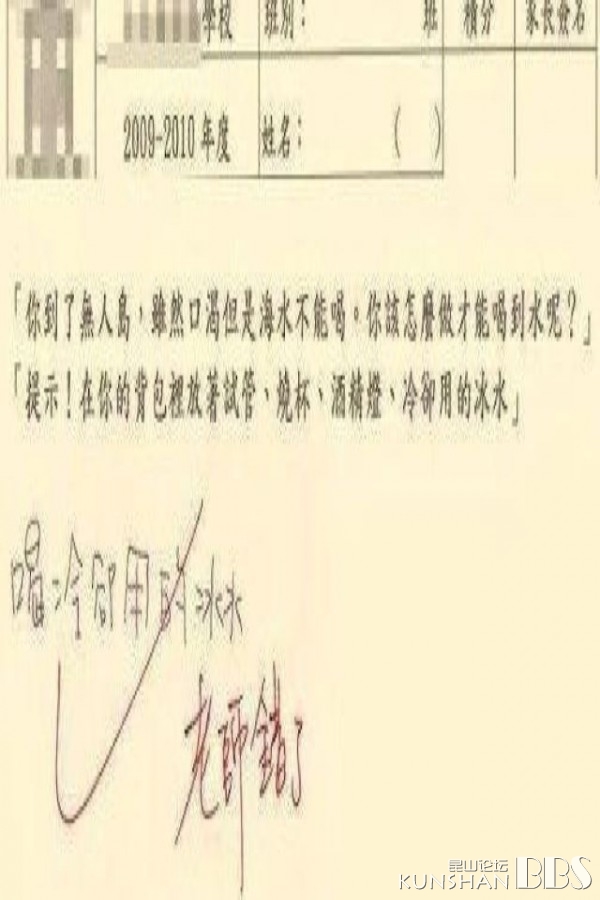 學校 班別： 班 積分 家長簽名
2009-2010 年度 姓名： （ ）
「你到了無人島，雖然口渴但是海水不能喝。你該怎麼做才能喝到水呢？」
「提示！在你的背包裡放著試管、燒杯、酒精燈、冷卻用的冰水」
喝冷卻用的冰水
老師錯了
昆山论坛
KUNSHAN BBS